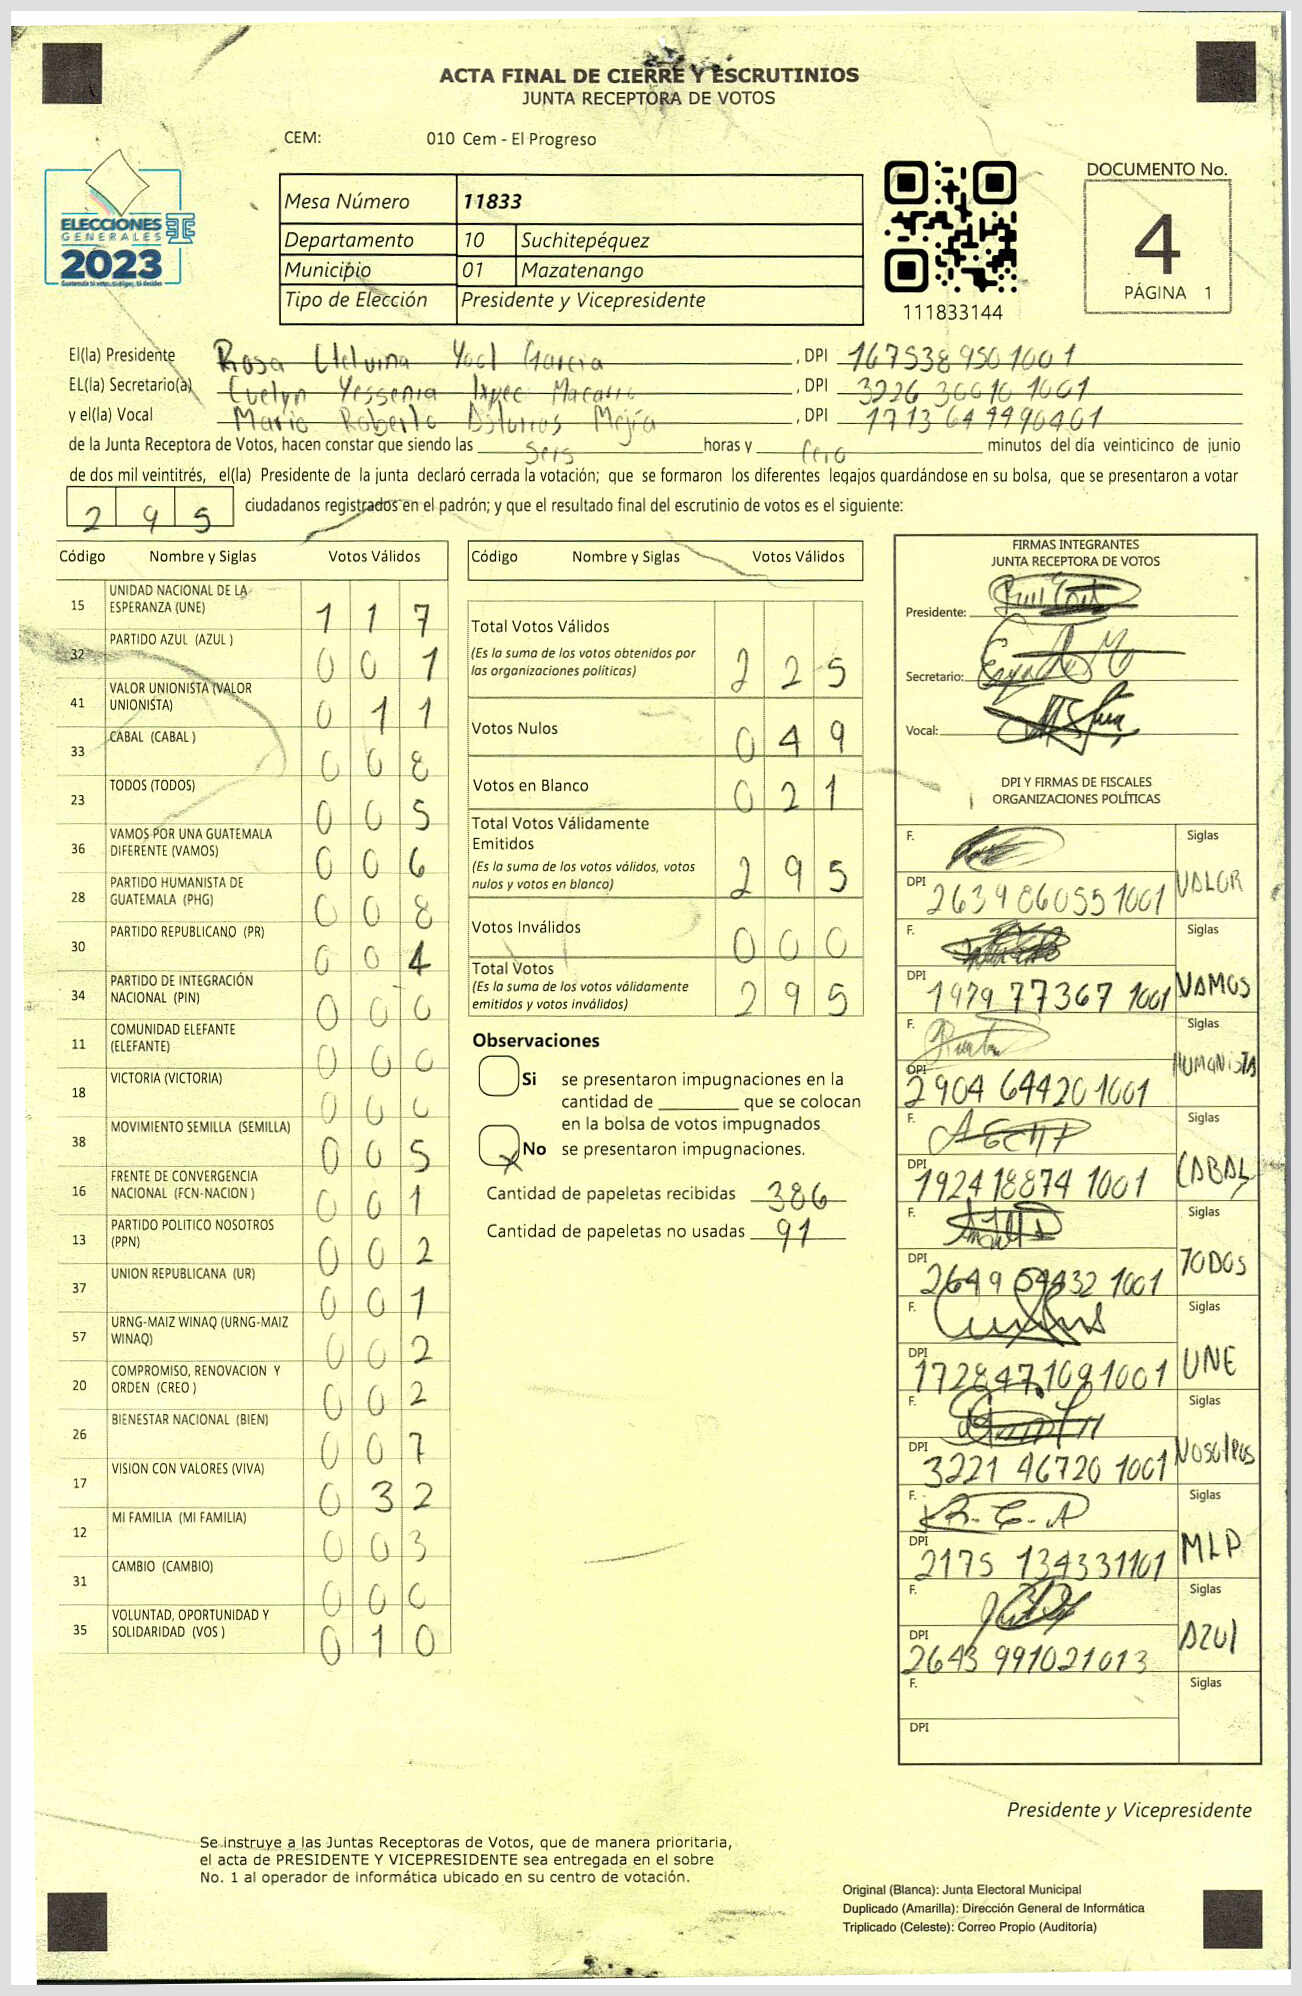 ACTA FINAL DE CIERRE Y ESCRUTINIOS
JUNTA RECEPTORA DE VOTOS
CEM: 010 Cem - El Progreso
ELECCIONES
GENERALES
2023
Mesa Número 11833
Departamento 10 Suchitepéquez
Municipio 01 Mazatenango
Tipo de Elección Presidente y Vicepresidente
111833144
DOCUMENTO No.
4
PÁGINA 1
El(la) Presidente Rosa Yool García, DPI 1675389501001
EL(la) Secretario(a) Evelyn Yessenia Ixpec, DPI 3226 30010 1001
y el(la) Vocal Mario Roberto Asturias Mejía, DPI 1713649990401
de la Junta Receptora de Votos, hacen constar que siendo las Seis horas y Cero minutos del día veinticinco de junio
de dos mil veintitrés, el(la) Presidente de la junta declaró cerrada la votación; que se formaron los diferentes legajos quardándose en su bolsa, que se presentaron a votar
2 9 5 ciudadanos registrados en el padrón; y que el resultado final del escrutinio de votos es el siguiente:
Código Nombre y Siglas Votos Válidos
15 UNIDAD NACIONAL DE LA ESPERANZA (UNE) 1 1 7
32 PARTIDO AZUL (AZUL ) 0 0 1
41 VALOR UNIONISTA (VALOR UNIONISTA) 0 1 1
33 CABAL (CABAL ) 0 0 8
23 TODOS (TODOS) 0 0 5
36 VAMOS POR UNA GUATEMALA DIFERENTE (VAMOS) 0 0 6
28 PARTIDO HUMANISTA DE GUATEMALA (PHG) 0 0 8
30 PARTIDO REPUBLICANO (PR) 0 0 4
34 PARTIDO DE INTEGRACIÓN NACIONAL (PIN) 0 0 0
11 COMUNIDAD ELEFANTE (ELEFANTE) 0 0 0
18 VICTORIA (VICTORIA) 0 0 0
38 MOVIMIENTO SEMILLA (SEMILLA) 0 0 5
16 FRENTE DE CONVERGENCIA NACIONAL (FCN-NACION ) 0 0 1
13 PARTIDO POLITICO NOSOTROS (PPN) 0 0 2
37 UNION REPUBLICANA (UR) 0 0 1
57 URNG-MAIZ WINAQ (URNG-MAIZ WINAQ) 0 0 2
20 COMPROMISO, RENOVACION Y ORDEN (CREO ) 0 0 2
26 BIENESTAR NACIONAL (BIEN) 0 0 7
17 VISION CON VALORES (VIVA) 0 3 2
12 MI FAMILIA (MI FAMILIA) 0 0 3
31 CAMBIO (CAMBIO) 0 0 0
35 VOLUNTAD, OPORTUNIDAD Y SOLIDARIDAD (VOS ) 0 1 0
Código Nombre y Siglas Votos Válidos
Total Votos Válidos 2 2 5
(Es la suma de los votos obtenidos por
las organizaciones políticas)
Votos Nulos 0 4 9
Votos en Blanco 0 2 1
Total Votos Válidamente
Emitidos 2 9 5
(Es la suma de los votos válidos, votos
nulos y votos en blanco)
Votos Inválidos 0 0 0
Total Votos 2 9 5
(Es la suma de los votos válidamente
emitidos y votos inválidos)
Observaciones
Si se presentaron impugnaciones en la
cantidad de ________ que se colocan
en la bolsa de votos impugnados
X No se presentaron impugnaciones.
Cantidad de papeletas recibidas 386
Cantidad de papeletas no usadas 91
FIRMAS INTEGRANTES
JUNTA RECEPTORA DE VOTOS
Presidente:
Secretario:
Vocal:
DPI Y FIRMAS DE FISCALES
ORGANIZACIONES POLÍTICAS
F. Siglas
DPI 2639 86055 1001 VALOR
F. Siglas
DPI 1979 77367 1001 VAMOS
F. Siglas
DPI 2904 64420 1001 HUMANISTA
F. Siglas
DPI 1924 18874 1001 CABAL
F. Siglas
DPI 2649 54432 1001 TODOS
F. Siglas
DPI 172847109 1001 UNE
F. Siglas
DPI 3221 46720 1001
F. R.C.A Siglas
DPI 2175 134331101 MLP
F. Siglas
DPI 2643 991021013 AZUL
F. Siglas
DPI
Presidente y Vicepresidente
Se instruye a las Juntas Receptoras de Votos, que de manera prioritaria,
el acta de PRESIDENTE Y VICEPRESIDENTE sea entregada en el sobre
No. 1 al operador de informática ubicado en su centro de votación.
Original (Blanca): Junta Electoral Municipal
Duplicado (Amarilla): Dirección General de Informática
Triplicado (Celeste): Correo Propio (Auditoría)